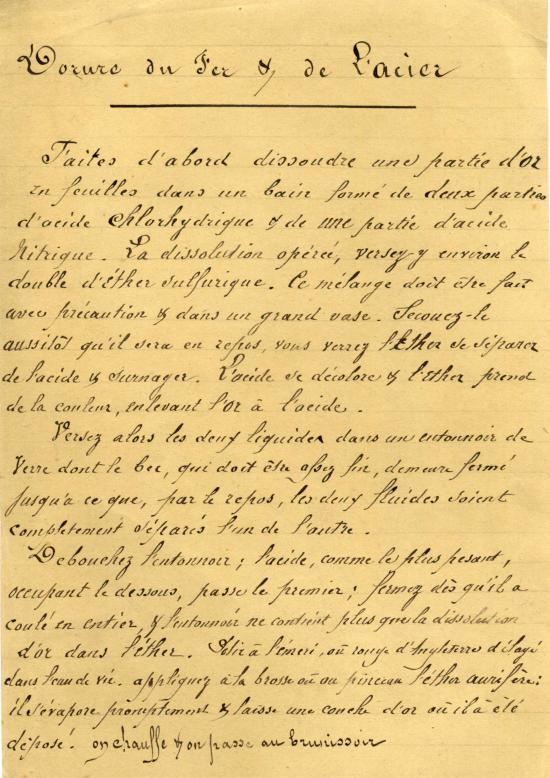 Dorure du Fer & de L'acier
Faites d'abord dissoudre une partie d'or
en feuilles dans un bain formé de deux parties
d'acide Chlorhydrique & de une partie d'acide
Nitrique. La dissolution opérée, versez-y environ le
double d'éther sulfurique. Ce mélange doit être fait
avec précaution & dans un grand vase. Secouez-le
aussitôt qu'il sera en repos, vous verrez l'Ether se séparer
de l'acide & surnager. L'acide se décolore & l'Ether prend
de la couleur, enlevant l'or à l'acide.
Versez alors les deux liquides dans un entonnoir de
Verre dont le bec, qui doit être assez fin, demeure fermé
jusqu'a ce que, par le repos, les deux fluides soient
complètement séparés l'un de l'autre.
Debouchez l'entonnoir ; l'acide, comme le plus pesant,
occupant le dessous, passe le premier ; fermez dès qu'il a
coulé en entier, & l'entonnoir ne contient plus que la dissolution
d'or dans l'éther. Polir à l'émeri, où rouge d'Angleterre délayé
dans l'eau de vie. appliquez à la brosse où au pinceau l'éther aurifère :
il s'évapore promptement & laisse une couche d'or où il a été
déposé. on chauffe & on passe au brunissoir